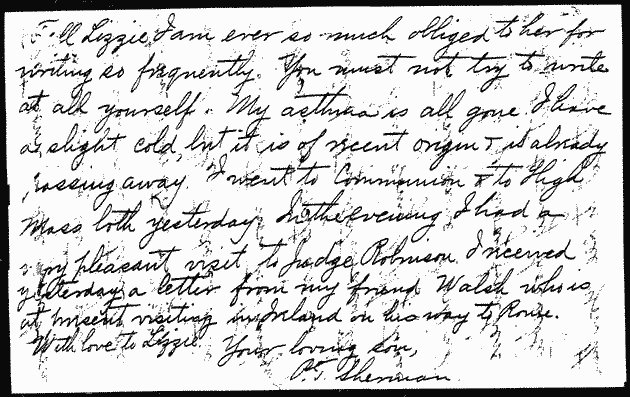 Tell Lizzie I am ever so much obliged to her for
writing so frequently. You must not try to write
at all yourself. My asthma is all gone. I have
a slight cold, but it is of recent origin & is already
passing away. I went to Communion & to High
Mass both yesterday. In the evening I had a
very pleasant visit to Judge Robinson. I received
yesterday a letter from my friend Walsh who is
at present visiting in Ireland on his way to Rome.
With love to Lizzie. Your loving son,
P.T. Sherman.